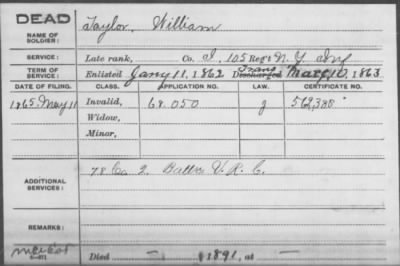 DEAD
NAME OF SOLDIER: Taylor, William
SERVICE: Late rank, Co. I, 105 Reg't N. Y. Inf
TERM OF SERVICE: Enlisted Jany 11, 1862 Discharged Trans Mar 10, 1863
DATE OF FILING. CLASS. APPLICATION NO. LAW. CERTIFICATE NO.
1865. May 11 Invalid, 68.050 g 562,388
Widow,
Minor,
ADDITIONAL SERVICES: 78 Co 2. Batt V. R. C.
REMARKS:
Died — , 1891, at —